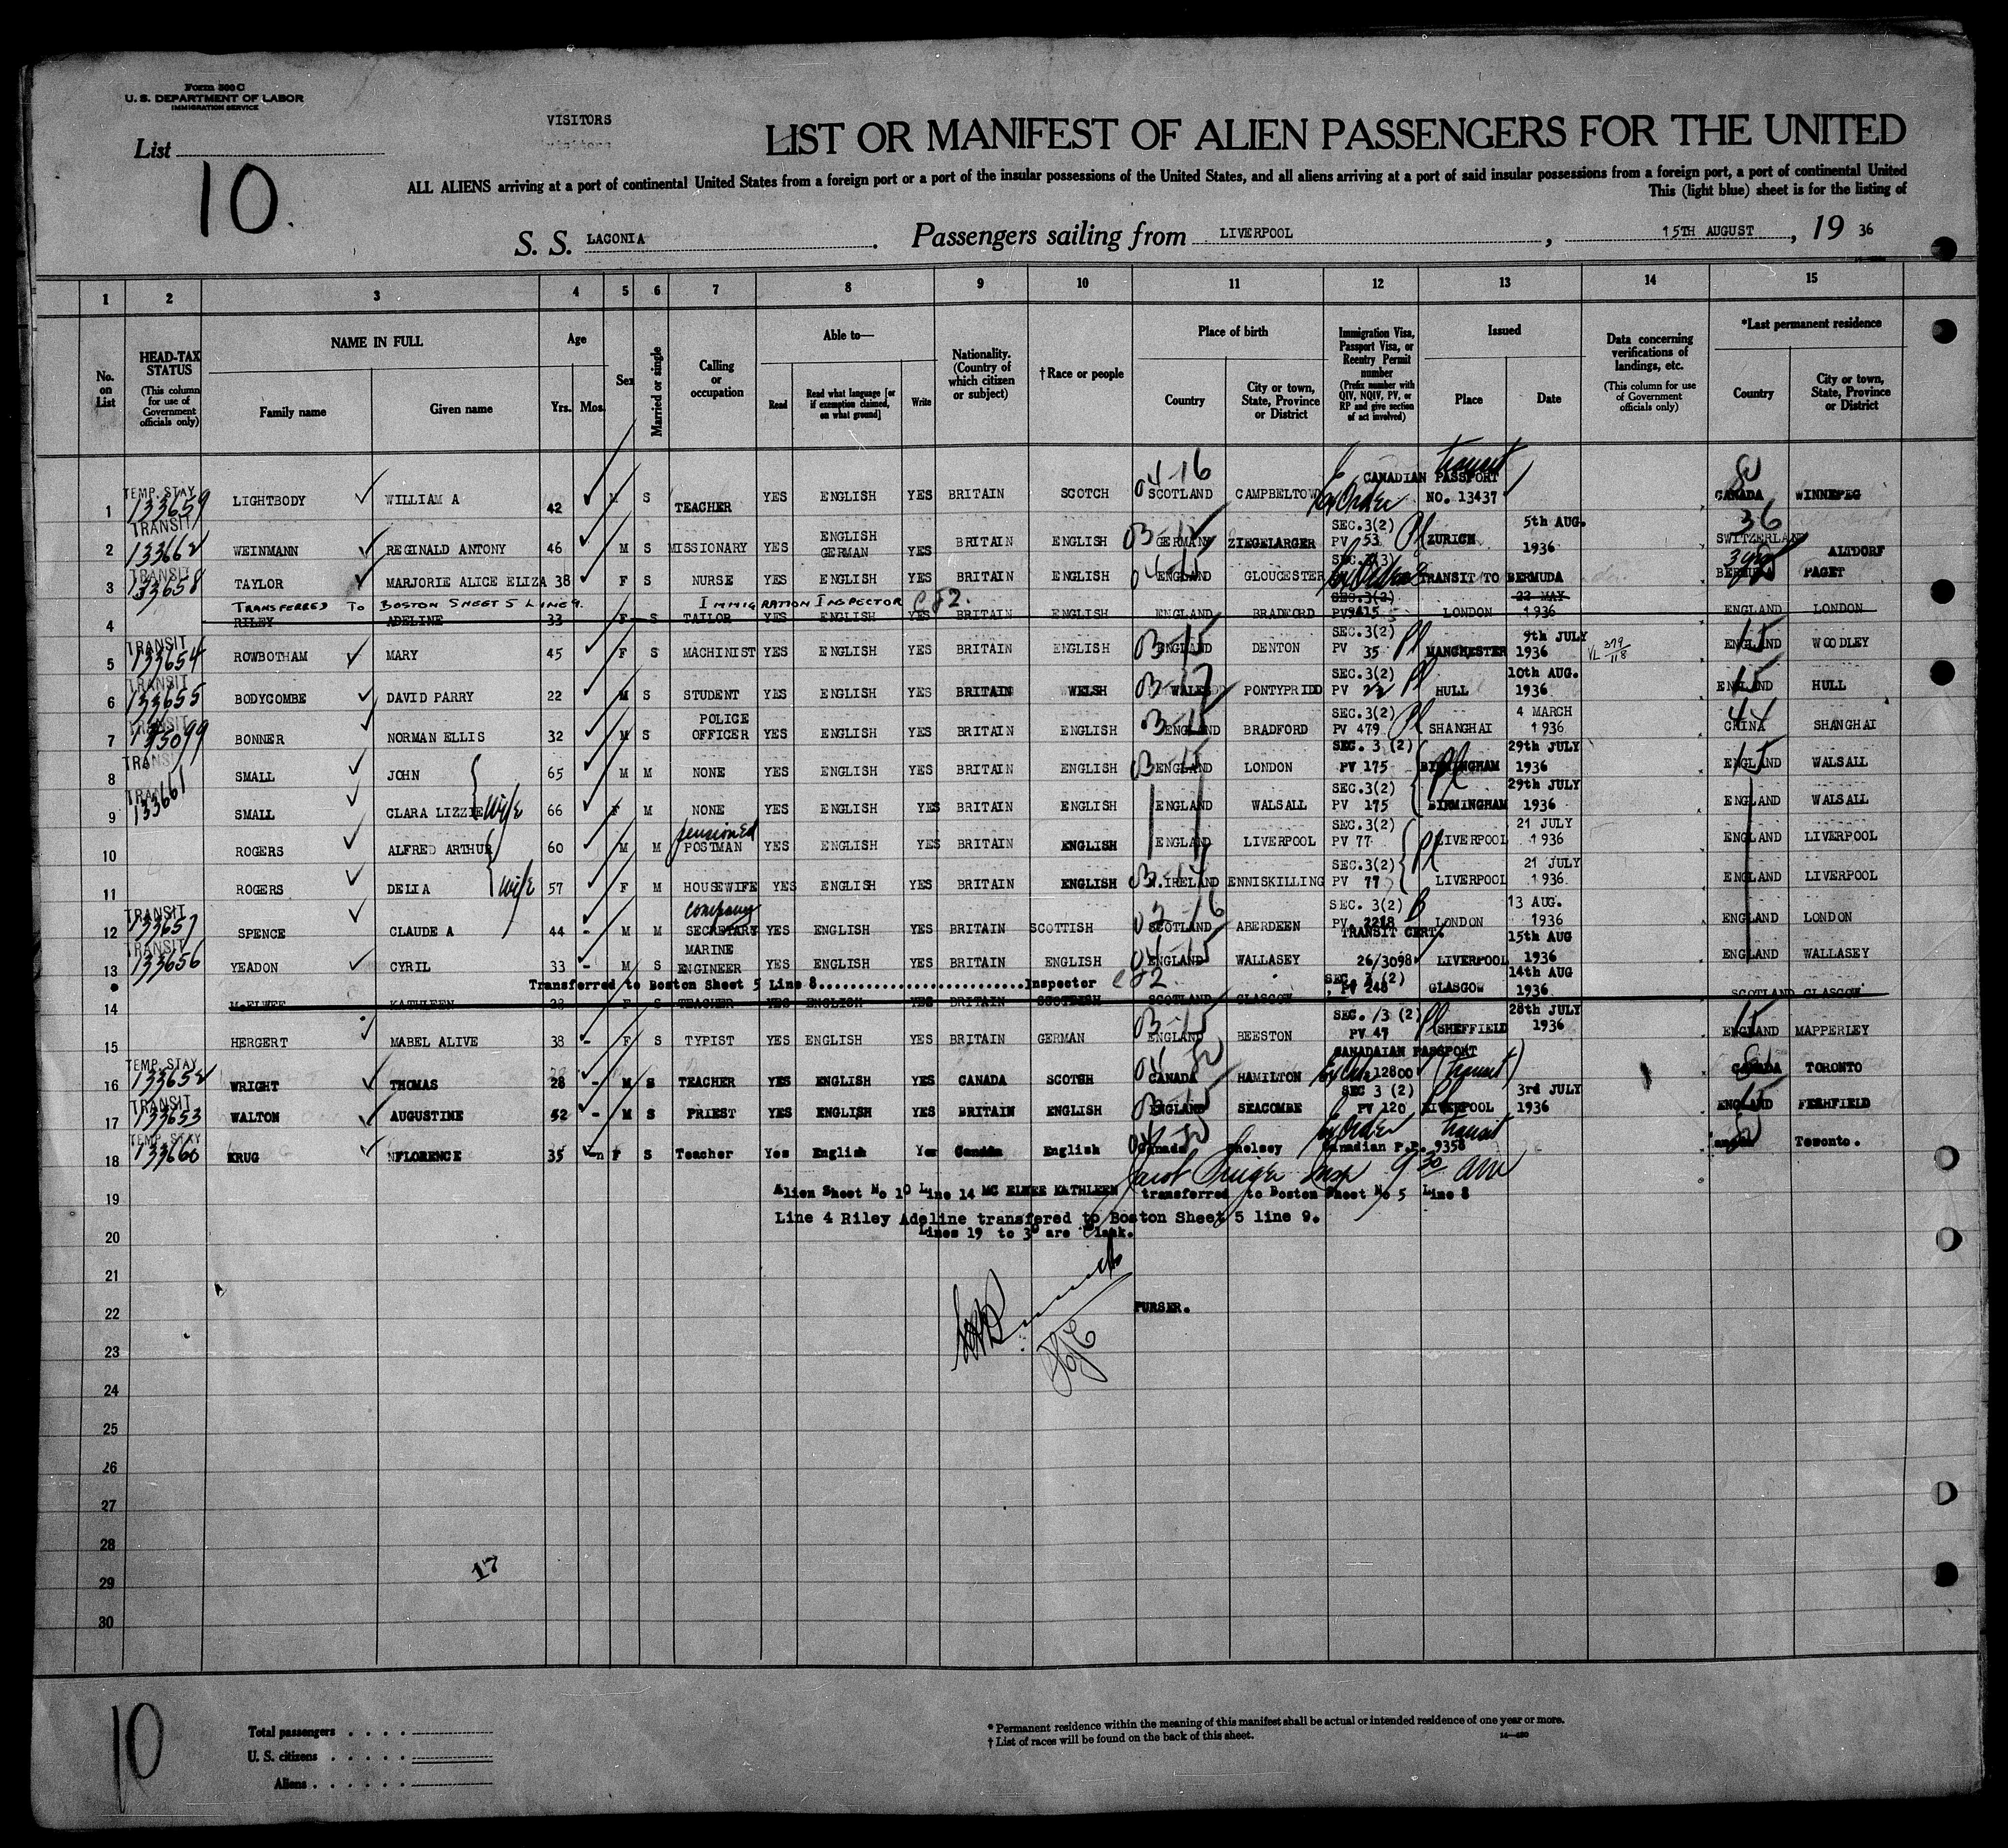 Form 500 C
U. S. DEPARTMENT OF LABOR
IMMIGRATION SERVICE
List
10.
VISITORS
LIST OR MANIFEST OF ALIEN PASSENGERS FOR THE UNITED
ALL ALIENS arriving at a port of continental United States from a foreign port or a port of the insular possessions of the United States, and all aliens arriving at a port of said insular possessions from a foreign port, a port of continental United
This (light blue) sheet is for the listing of
S. S. LACONIA . Passengers sailing from LIVERPOOL , 15TH AUGUST , 19 36
1 2 3 4 5 6 7 8 9 10 11 12 13 14 15
No. on List
HEAD-TAX STATUS (This column for use of Government officials only)
NAME IN FULL Family name Given name
Age Yrs. Mos.
Sex
Married or single
Calling or occupation
Able to— Read Read what language [or if exemption claimed, on what ground] Write
Nationality. (Country of which citizen or subject)
†Race or people
Place of birth Country City or town, State, Province or District
Immigration Visa, Passport Visa, or Reentry Permit number (Prefix number with QIV, NQIV, PV, or RP and give section of act involved)
Issued Place Date
Data concerning verifications of landings, etc. (This column for use of Government officials only)
*Last permanent residence Country City or town, State, Province or District
1 TEMP. STAY 133659 LIGHTBODY WILLIAM A 42 M S TEACHER YES ENGLISH YES BRITAIN SCOTCH 04-16 SCOTLAND CAMPBELTOWN CANADIAN PASSPORT NO. 13437 transit CANADA WINNEPEG
2 TRANSIT 133662 WEINMANN REGINALD ANTONY 46 M S MISSIONARY YES ENGLISH GERMAN YES BRITAIN ENGLISH GERMANY ZIEGELARGER SEC.3(2) PV 53 ZURICH 5th AUG. 1936 36 SWITZERLAND ALTDORF
3 TRANSIT 133658 TAYLOR MARJORIE ALICE ELIZA 38 F S NURSE YES ENGLISH YES BRITAIN ENGLISH 04-15 ENGLAND GLOUCESTER TRANSIT TO BERMUDA BERMUDA PAGET
TRANSFERRED TO BOSTON SHEET 5 LINE 9. IMMIGRATION INSPECTOR
4 RILEY ADELINE 33 F S TAILOR YES ENGLISH YES BRITAIN ENGLISH ENGLAND BRADFORD SEC.3(2) PV9415 LONDON 22 MAY 1936 ENGLAND LONDON
5 TRANSIT 133654 ROWBOTHAM MARY 45 F S MACHINIST YES ENGLISH YES BRITAIN ENGLISH 03-15 ENGLAND DENTON SEC.3(2) PV 35 MANCHESTER 9th JULY 1936 VL 379/118 15 ENGLAND WOODLEY
6 TRANSIT 133655 BODYCOMBE DAVID PARRY 22 M S STUDENT YES ENGLISH YES BRITAIN WELSH 03-17 WALES PONTYPRIDD SEC.3(2) PV 22 HULL 10th AUG. 1936 15 ENGLAND HULL
7 BONNER NORMAN ELLIS 32 M S POLICE OFFICER YES ENGLISH YES BRITAIN ENGLISH 03-15 ENGLAND BRADFORD SEC.3(2) PV 479 SHANGHAI 4 MARCH 1936 44 CHINA SHANGHAI
8 SMALL JOHN 65 M M NONE YES ENGLISH YES BRITAIN ENGLISH 03-15 ENGLAND LONDON SEC. 3 (2) PV 175 BIRMINGHAM 29th JULY 1936 15 ENGLAND WALSALL
9 133661 SMALL CLARA LIZZIE wife 66 F M NONE YES ENGLISH YES BRITAIN ENGLISH ENGLAND WALSALL SEC.3(2) PV 175 BIRMINGHAM 29th JULY 1936 ENGLAND WALSALL
10 ROGERS ALFRED ARTHUR 60 M M pensioned POSTMAN YES ENGLISH YES BRITAIN ENGLISH ENGLAND LIVERPOOL SEC.3(2) PV 77 LIVERPOOL 21 JULY 1936 ENGLAND LIVERPOOL
11 ROGERS DELIA wife 57 F M HOUSEWIFE YES ENGLISH YES BRITAIN ENGLISH N. IRELAND ENNISKILLING SEC.3(2) PV 77 LIVERPOOL 21 JULY 1936 ENGLAND LIVERPOOL
12 TRANSIT 133657 SPENCE CLAUDE A 44 - M M company SECRETARY YES ENGLISH YES BRITAIN SCOTTISH SCOTLAND ABERDEEN SEC. 3(2) PV. 2218 LONDON 13 AUG. 1936 ENGLAND LONDON
13 TRANSIT 133656 YEADON CYRIL 33 - M S MARINE ENGINEER YES ENGLISH YES BRITAIN ENGLISH 04-15 ENGLAND WALLASEY TRANSIT CERT. 26/3098 LIVERPOOL 15th AUG 1936 ENGLAND WALLASEY
Transferred to Boston Sheet 5 Line 8............................Inspector
14 McELWEE KATHLEEN 28 F S TEACHER YES ENGLISH YES BRITAIN SCOTTISH SCOTLAND GLASGOW SEC. 3 (2) PV 248 GLASGOW 14th AUG 1936 SCOTLAND GLASGOW
15 HERGERT MABEL ALIVE 38 - F S TYPIST YES ENGLISH YES BRITAIN GERMAN 03-15 ENGLAND BEESTON SEC. 3 (2) PV 47 SHEFFIELD 28th JULY 1936 15 ENGLAND MAPPERLEY
16 TEMP. STAY 133652 WRIGHT THOMAS 28 - M S TEACHER YES ENGLISH YES CANADA SCOTSH CANADA HAMILTON CANADAIAN PASSPORT 12800 (transit) CANADA TORONTO
17 TRANSIT 133653 WALTON AUGUSTINE 52 - M S PRIEST YES ENGLISH YES BRITAIN ENGLISH 03-15 ENGLAND SEACOMBE SEC 3 (2) PV 120 LIVERPOOL 3rd JULY 1936 15 ENGLAND FRSHFIELD
18 TEMP. STAY 133660 KRUG FLORENCE 35 F S Teacher Yes English Yes Canada English Canada Chelsey Canadian P.P. 9358 transit Toronto.
9 30 am
19 Alien Sheet No 10 Line 14 MC ELWEE KATHLEEN transferred to Boston Sheet No 5 Line 8
Line 4 Riley Adeline transfered to Boston Sheet 5 line 9.
20 Lines 19 to 30 are Blank.
21
22 PURSER.
23
24
25
26
27
28
17
29
30
10
Total passengers
U. S. citizens
Aliens
* Permanent residence within the meaning of this manifest shall be actual or intended residence of one year or more.
† List of races will be found on the back of this sheet.